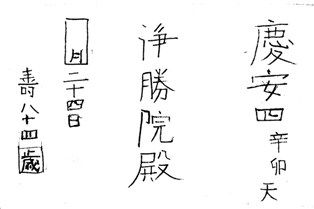 慶安四辛卯天
浄勝院殿
月二十四日
壽八十四歳